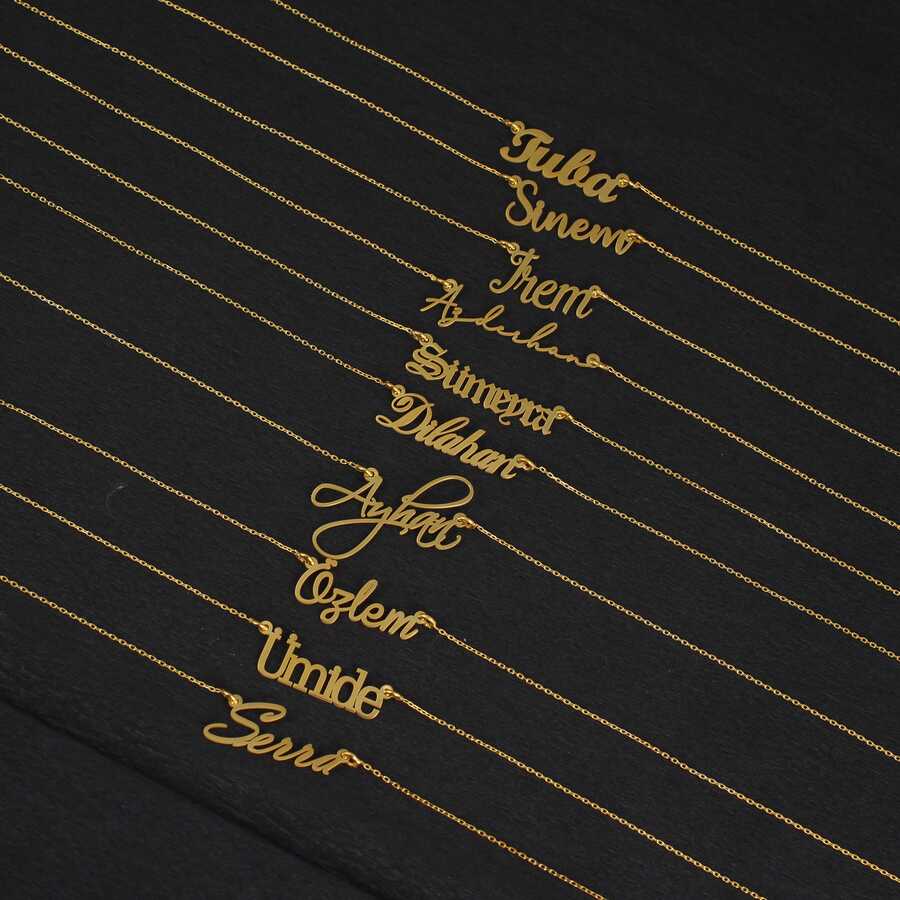 Tuba
Sinem
İrem
Azderhan
Sümeyra
Dilahan
Ayhan
Özlem
Ümide
Serra